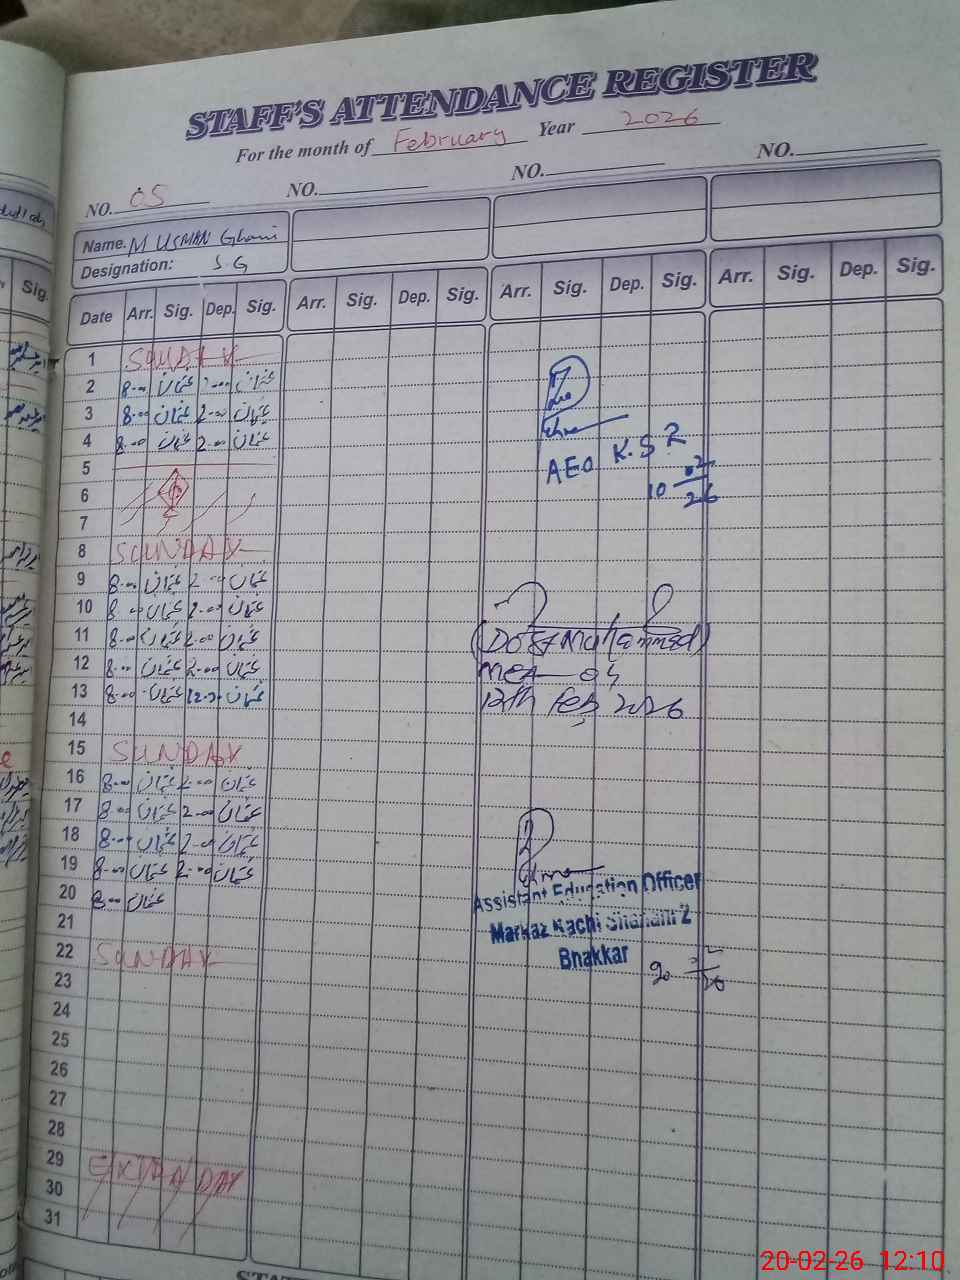 STAFF'S ATTENDANCE REGISTER
For the month of February Year 2026
NO. 05 NO. NO. NO.
Name. M USMAN Ghani
Designation: S.G
Date Arr. Sig. Dep. Sig. Arr. Sig. Dep. Sig. Arr. Sig. Dep. Sig. Arr. Sig. Dep. Sig.
1 SUNDAY
2 8-00 عثمان 2-00 عثمان
3 8-00 عثمان 2-00 عثمان
4 8-00 عثمان 2-00 عثمان
AEO K.S 2
10 02/26
5
6
7
8 SUNDAY
9 8-00 عثمان 2-00 عثمان
10 8-00 عثمان 2-00 عثمان
11 8-00 عثمان 2-00 عثمان
(Dost Muhammad)
12 8-00 عثمان 2-00 عثمان
MEA-04
13 8-00 عثمان 12-00 عثمان
12th Feb 2026
14
15 SUNDAY
16 8-00 عثمان 2-00 عثمان
17 8-00 عثمان 2-00 عثمان
18 8-00 عثمان 2-00 عثمان
19 8-00 عثمان 2-00 عثمان
20 8-00 عثمان
Assistant Education Officer
21
Markaz Kachi Shahani 2
22 SUNDAY
Bhakkar
20 2/26
23
24
25
26
27
28
29 EXTRA DAY
30
31
20-02-26 12:10